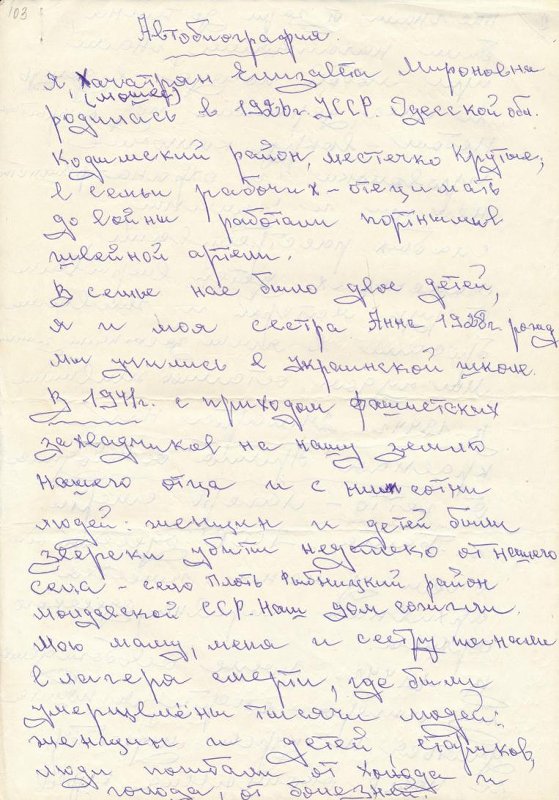 103
Автобиография.
Я, Хачатрян Елизавета Мироновна
(Мошес)
родилась в 1926г. УССР. Одесской обл.
Кодымский район, местечко Крутые,
в семьи рабочих – отец и мать
до войны работали портными в
швейной артели.
В семье нас было двое детей,
я и моя сестра Анна 1928г. рожд
мы учились в Украинской школе.
В 1941г. с приходом фашистских
захвадчиков на нашу землю
нашего отца и с ним сотни
людей: женщин и детей были
зверски убиты недалеко от нашего
села – село Плоть Рыбницкий район
молдавской ССР. Наш дом сожгли.
Мою маму, меня и сестру погнали
в лагеря смерти, где были
умерщвлёны тысячи людей:
женщин и детей стариков,
люди погибали от холода и
голода, от болезней.